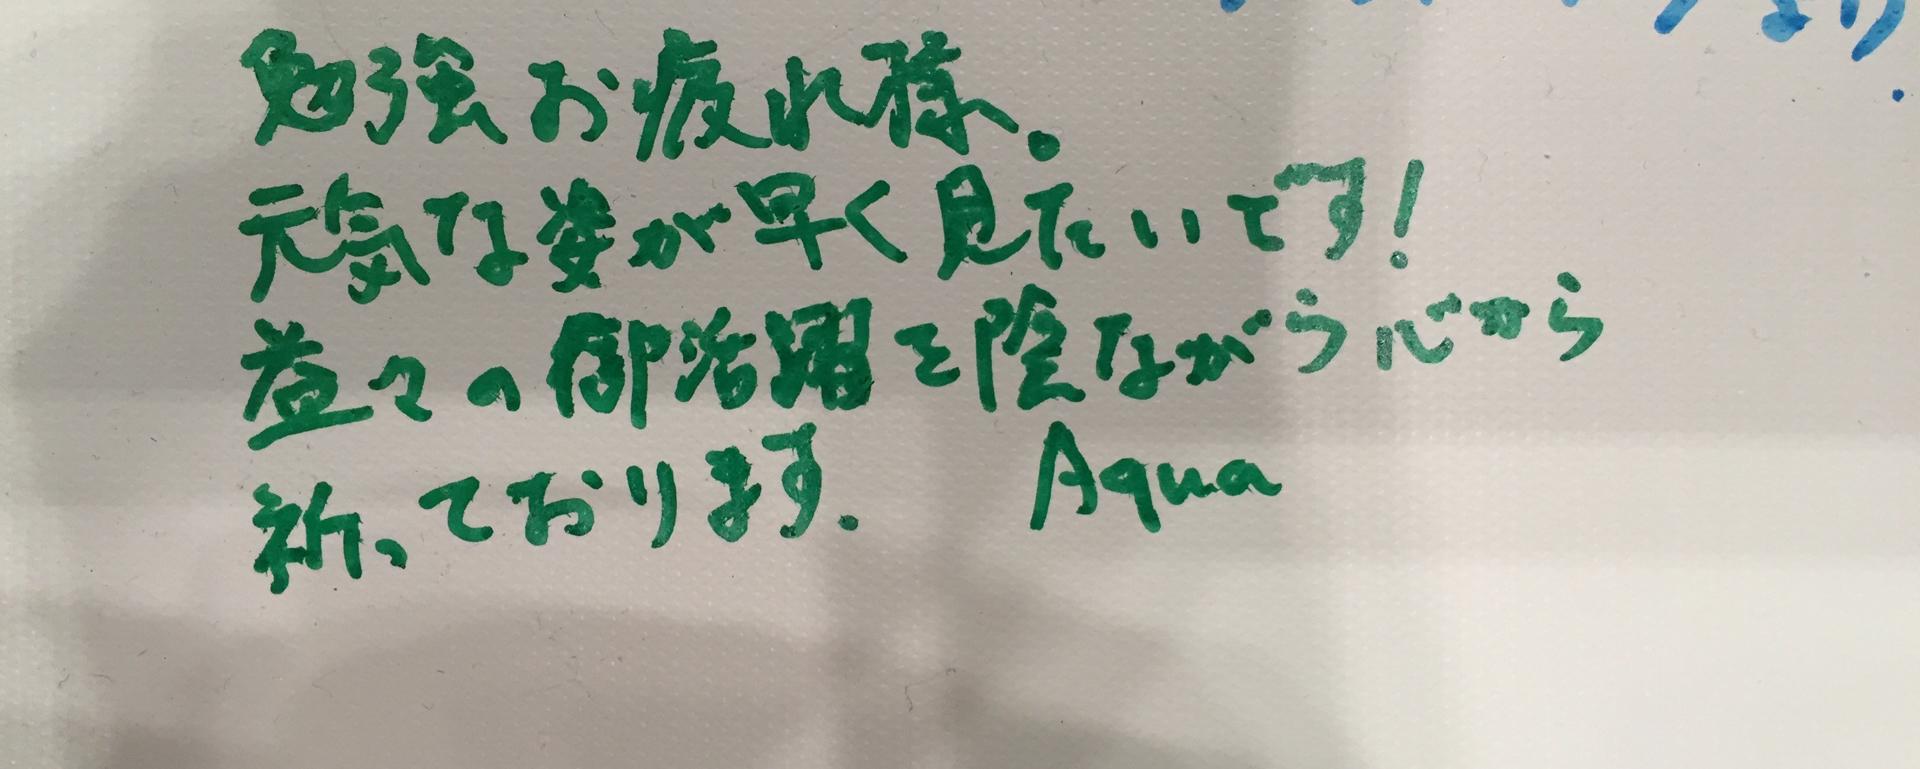 勉強お疲れ様.
元気な姿が早く見たいです!
益々の御活躍を陰ながら心から
祈っております.
Aqua